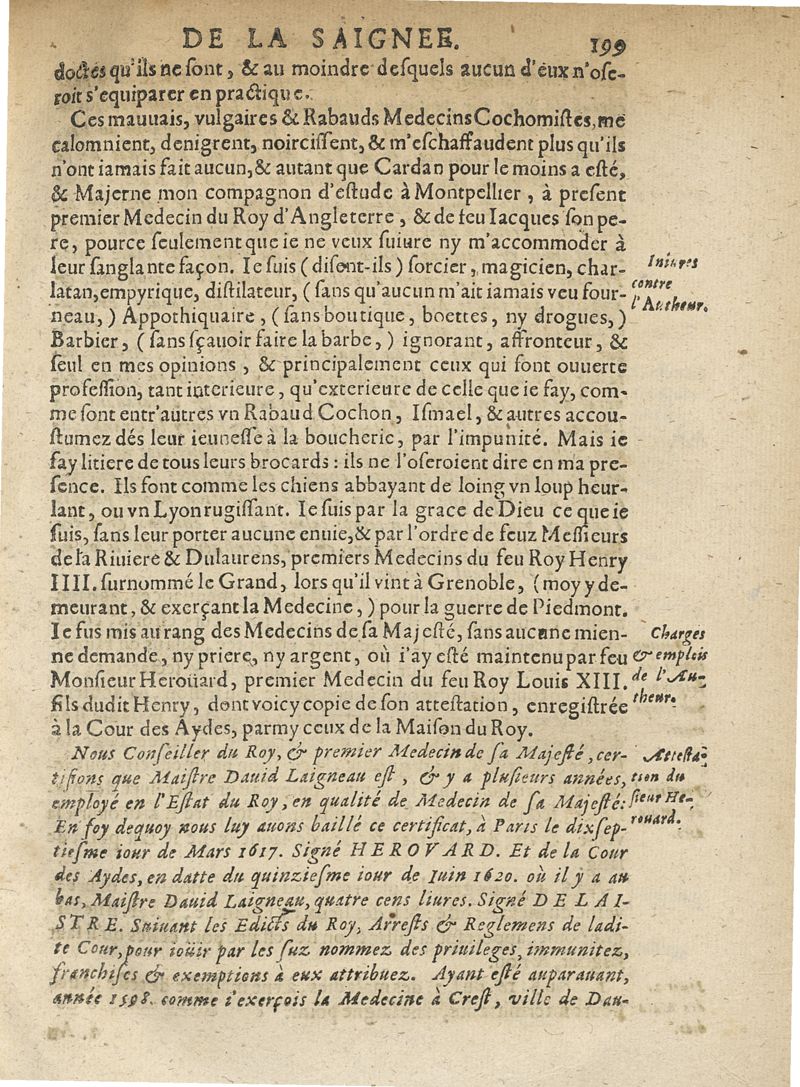 DE LA SAIGNEE. 199
doctes qu'ils ne sont, & au moindre desquels aucun d'eux n'ose-
roit s'equiparer en practique.
Ces mauuais, vulgaires & Rabauds Medecins Cochomistes, me
calomnient, denigrent, noircissent, & m'eschaffaudent plus qu'ils
n'ont iamais fait aucun, & autant que Cardan pour le moins a esté,
& Majerne mon compagnon d'estude à Montpellier, à present
premier Medecin du Roy d'Angleterre, & de feu Iacques son pe-
re, pource seulement que ie ne veux suiure ny m'accommoder à
leur sanglante façon. Ie suis (disent-ils) sorcier, magicien, char-
latan, empyrique, distilateur, (sans qu'aucun m'ait iamais veu four-
neau,) Appothiquaire, (sans boutique, boettes, ny drogues,)
Barbier, (sans sçauoir faire la barbe,) ignorant, affronteur, &
seul en mes opinions, & principalement ceux qui font ouuerte
profession, tant interieure, qu'exterieure de celle que ie fay, com-
me sont entr'autres vn Rabaud Cochon, Ismael, & autres accou-
stumez dés leur ieunesse à la boucherie, par l'impunité. Mais ie
fay litiere de tous leurs brocards : ils ne l'oseroient dire en ma pre-
sence. Ils font comme les chiens abbayant de loing vn loup heur-
lant, ou vn Lyon rugissant. Ie suis par la grace de Dieu ce que ie
suis, sans leur porter aucune enuie, & par l'ordre de feuz Messieurs
de la Riuiere & Dulaurens, premiers Medecins du feu Roy Henry
IIII. surnommé le Grand, lors qu'il vint à Grenoble, (moy y de-
meurant, & exerçant la Medecine,) pour la guerre de Piedmont.
Ie fus mis au rang des Medecins de sa Majesté, sans aucune mien-
ne demande, ny priere, ny argent, où i'ay esté maintenu par feu
Monsieur Heroüard, premier Medecin du feu Roy Louis XIII.
fils dudit Henry, dont voicy copie de son attestation, enregistrée
à la Cour des Aydes, parmy ceux de la Maison du Roy.
Nous Conseiller du Roy, & premier Medecin de sa Majesté, cer-
tifions que Maistre Dauid Laigneau est, & y a plusieurs années,
employé en l'Estat du Roy, en qualité de Medecin de sa Majesté:
En foy dequoy nous luy auons baillé ce certificat, à Paris le dixsep-
tiesme iour de Mars 1617. Signé HEROVARD. Et de la Cour
des Aydes, en datte du quinziesme iour de Iuin 1620. où il y a au
bas, Maistre Dauid Laigneau, quatre cens liures. Signé DE LAI-
STRE. Suiuant les Edicts du Roy, Arrests & Reglemens de ladi-
te Cour, pour ioüir par les suz nommez des priuileges, immunitez,
franchises & exemptions à eux attribuez. Ayant esté auparauant,
année 1598. comme i'exerçois la Medecine à Crest, ville de Dau-
Iniures
contre
l'Autheur.
Charges
& emplois
de l'Au-
theur.
Attesta-
tion du
sieur He-
rouard.